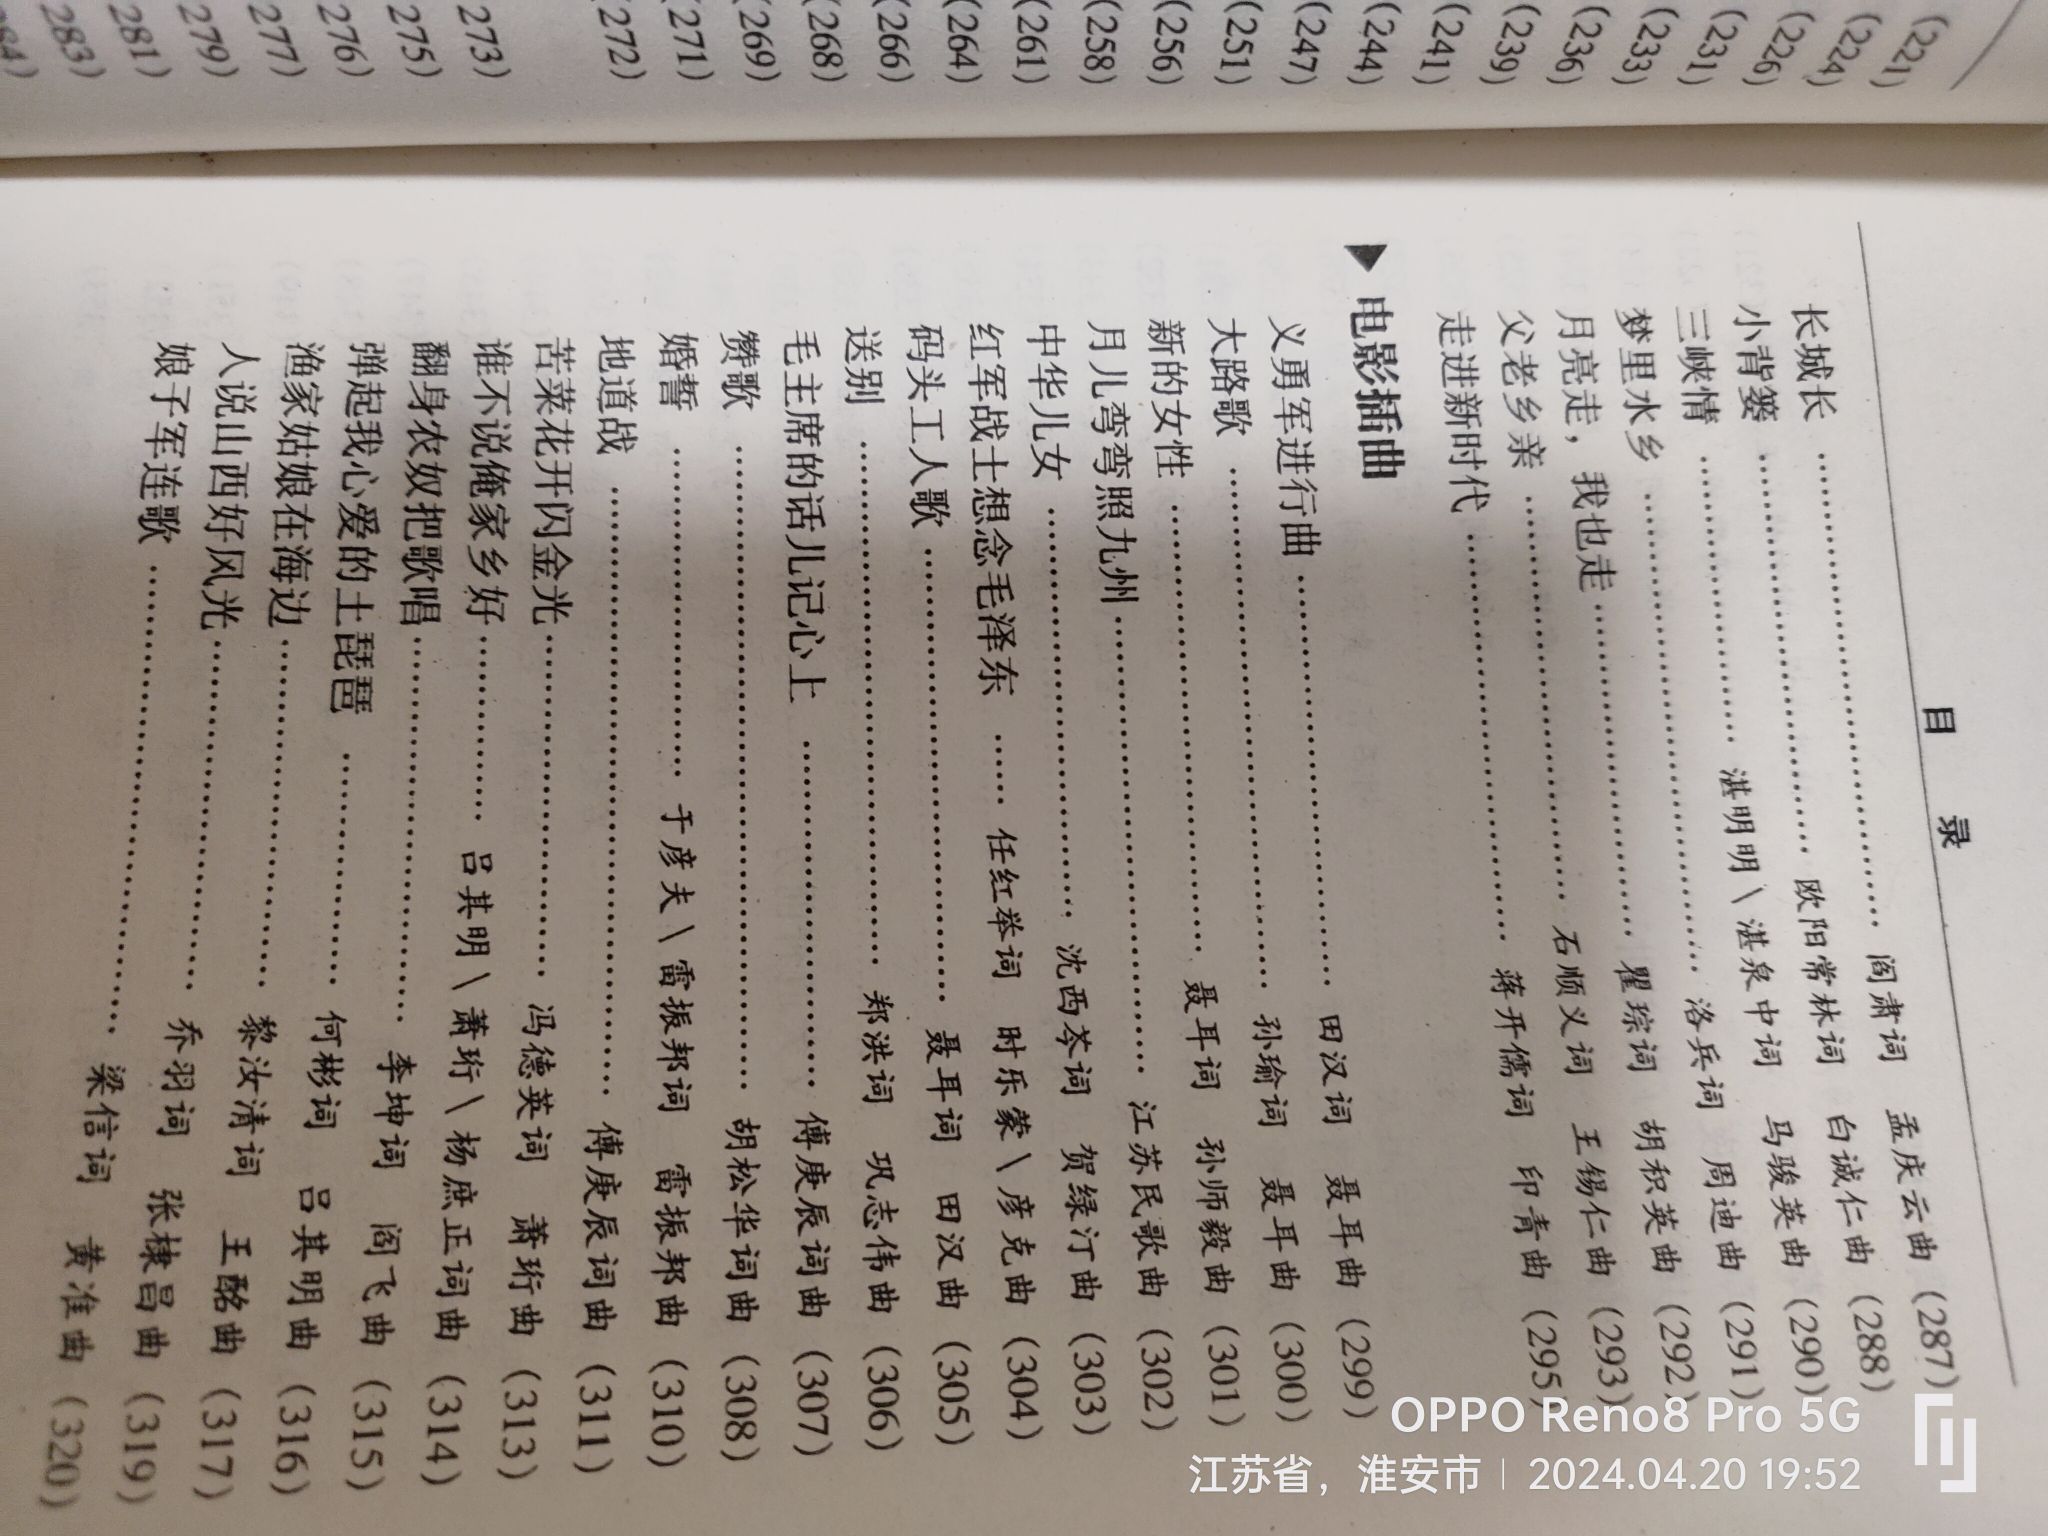 目 录
长城长 …… 阎肃词 孟庆云曲 (287)
小背篓 …… 欧阳常林词 白诚仁曲 (288)
三峡情 …… 湛明明\湛泉中词 马骏英曲 (290)
梦里水乡 …… 洛兵词 周迪曲 (291)
月亮走，我也走 …… 瞿琮词 胡积英曲 (292)
父老乡亲 …… 石顺义词 王锡仁曲 (293)
走进新时代 …… 蒋开儒词 印青曲 (295)
▶ 电影插曲
义勇军进行曲 …… 田汉词 聂耳曲 (299)
大路歌 …… 孙瑜词 聂耳曲 (300)
新的女性 …… 聂耳词 孙师毅曲 (301)
月儿弯弯照九州 …… 江苏民歌曲 (302)
中华儿女 …… 沈西苓词 贺绿汀曲 (303)
红军战士想念毛泽东 …… 任红举词 时乐蒙\彦克曲 (304)
码头工人歌 …… 聂耳词 田汉曲 (305)
送别 …… 郑洪词 巩志伟曲 (306)
毛主席的话儿记心上 …… 傅庚辰词曲 (307)
赞歌 …… 胡松华词曲 (308)
婚誓 …… 于彦夫\雷振邦词 雷振邦曲 (310)
地道战 …… 傅庚辰词曲 (311)
苦菜花开闪金光 …… 冯德英词 萧珩曲 (313)
谁不说俺家乡好 …… 吕其明\萧珩\杨庶正词曲 (314)
翻身农奴把歌唱 …… 李坤词 阎飞曲 (315)
弹起我心爱的土琵琶 …… 何彬词 吕其明曲 (316)
渔家姑娘在海边 …… 黎汝清词 王酩曲 (317)
人说山西好风光 …… 乔羽词 张棣昌曲 (319)
娘子军连歌 …… 梁信词 黄准曲 (320)
(221)
(224)
(226)
(231)
(233)
(236)
(239)
(241)
(244)
(247)
(251)
(256)
(258)
(261)
(264)
(266)
(268)
(269)
(271)
(272)
273)
275)
276)
277)
279)
281)
283)
284)
OPPO Reno8 Pro 5G
江苏省，淮安市 | 2024.04.20 19:52